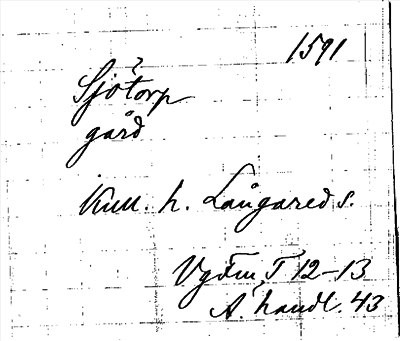 1591
Sjötorp
gård
Kull. h. Långareds s.
VgFm, T 12-13
A. handl. 43